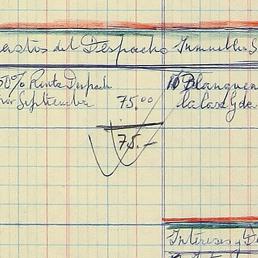 Gastos del Despacho Inmuebles
50% Renta Despach
por Septiembre 75,00
75.-
Blanquea
la Casa Gde
Intereses y D